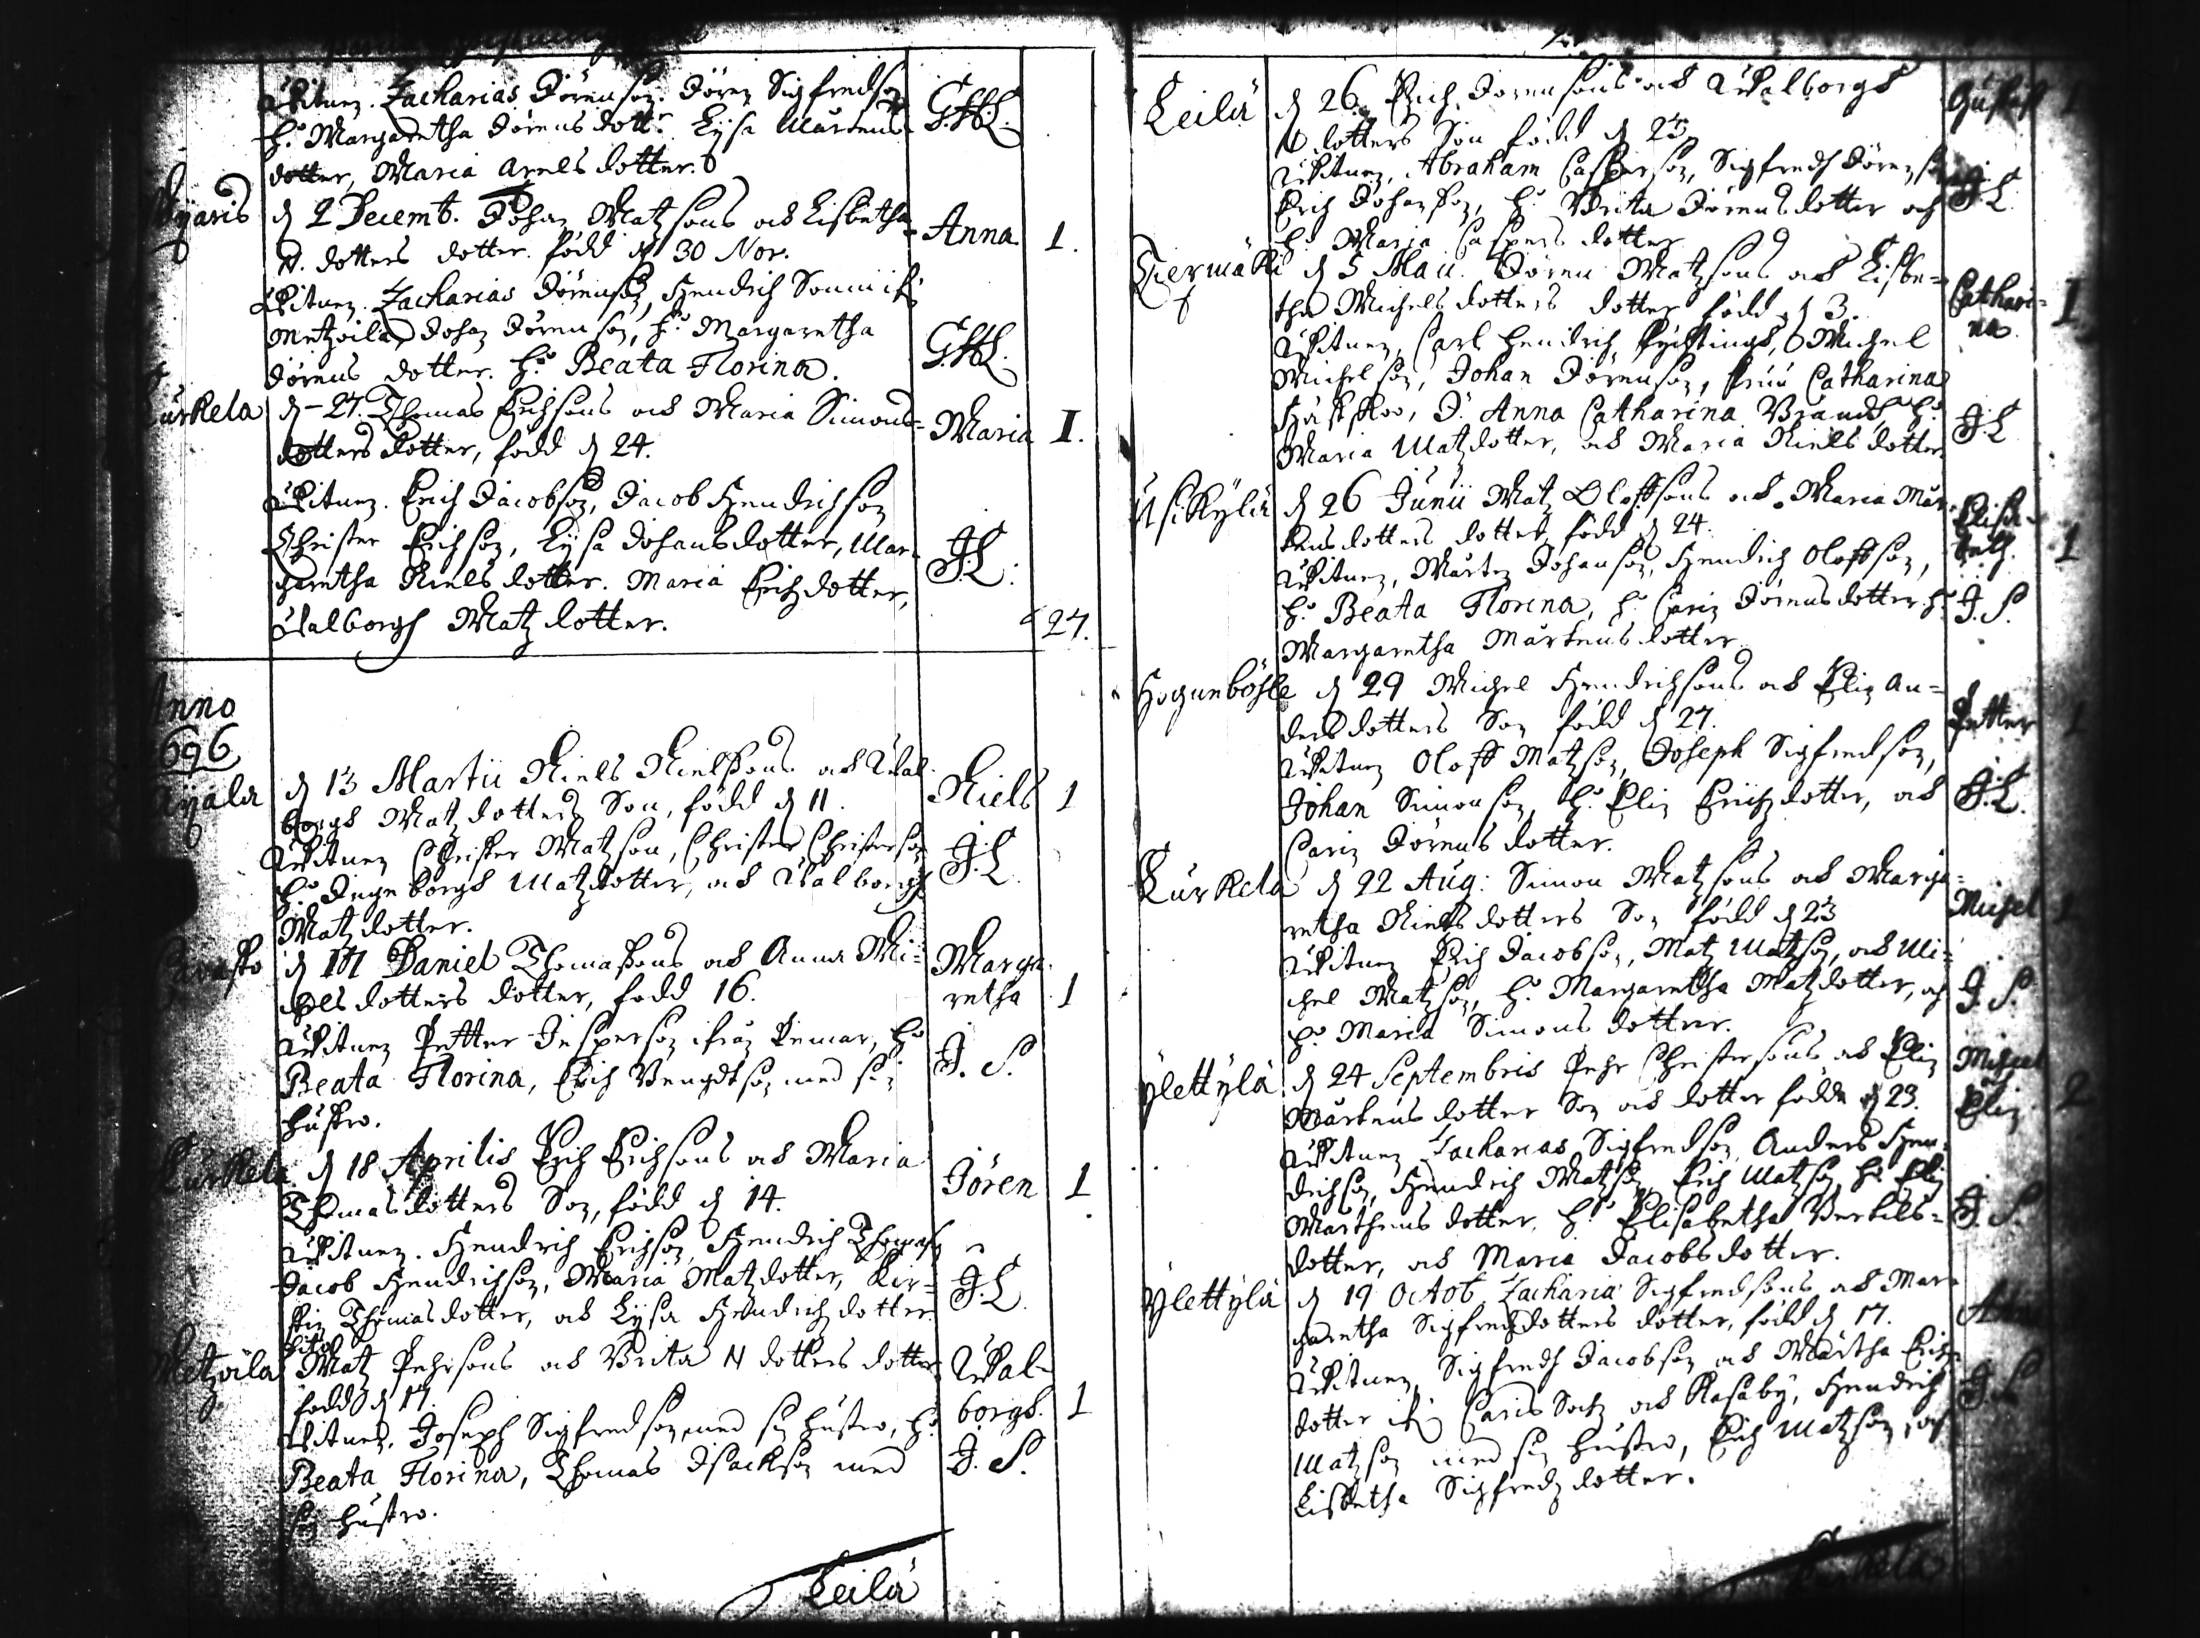 Witnen. Zacharias Jörenson. Jören Sigfredson
H:o Margaretha Jörens dott:r Lysa Mårtens
dotter, Maria Arelsdotter.
G.H.L.
yaris
d 2 Decemb. Johan Matzsons och Lisbetha
N. dotters dotter. född d 30 Nov.
Anna 1.
Witnen. Zacharias Jörenson, Hendrich
Metzoila, Johan Jörenson, H:o Margaretha
Jörens dotter. H:o Beata Florina.
G.H.L.
urkela
d - 27. Thomas Erichsons och Maria Simons-
dotters dotter, född d 24.
Maria I.
Witnen. Erich Jacobson, Jacob Hendrichson
Christer Erichson, Lysa Johansdotter, Mar-
garetha Nielsdotter. Maria Erichzdotter,
Walborgh Matzdotter.
J.L.
27.
Anno
696
yala
d 13 Martii Niels Nielssons och Wal-
borgs Matzdotters Son, född d 11.
Niels 1
Witnen Christer Matzson, Christer Christerson
H:o Ingeborgs Matzdotter, och Walborgh
Matzdotter.
J.L.
d 17 Daniel Thomassons och Anna Mi-
chelsdotters dotter, född 16.
Marga-
retha 1
Witnen Petter Jesperson ifrån Pemar, H:o
Beata Florina, Erich Bengdtson med sin
hustro.
J. S.
Kurkela
d 18 Aprilis Erich Erichsons och Maria
Thomasdotters Son, född d 14.
Jören 1
Witnen. Hendrich Erichson, Hendrich Thomason
Jacob Hendrichson, Maria Matzdotter, Kir-
stin Thomasdotter, och Lysa Hendrichzdotter.
J.L.
Metzoila
dito
Matz Pehrsons och Brita N dotters dotter
född d 17.
Wal-
borgs. 1
Witnes. Joseph Sigfredson, med sin hustro, H:o
Beata Florina, Thomas Isackson med
sin hustro.
J. S.
Leilä
Leilä
d 26. Erich Jörensons och Walborgs
N dotters Son född d 23
Gustaf 1
Witnen, Abraham Casperson, Sigfredh Jörenson
Erich Johanson, H:o Brita Jörensdotter och
H:o Maria Caspersdotter
J.L.
Tiermäki
d 5 Maii. Jören Matzsons och Lisbe-
tha Michelsdotters dotter född d 3.
Cathari-
na. I.
Witnen, Carl Hendrich, Michel
Michelson, Johan Jörenson, fruu Catharina
J. Anna Catharina Brandh, H:o
Maria Matzdotter, och Maria Nielsdotter
J.L
Usikylä
d 26 Junii Matz Oloffsons och Maria Mår-
tensdotters dotter född d 24.
Elisa-
beth. 1
Witnen, Mårten Johanson, Hendrich Oloffson,
H:o Beata Florina, H:o Carin Jörensdotter, H:o
Margaretha Mårtensdotter
J. S.
Hogunböhle
d 29 Michel Hendrichsons och Elin An-
dersdotters Son född d 27.
Petter 1
Witnen Oloff Matzson, Joseph Sigfredson,
Johan Simonson, H:o Elin Erichzdotter, och
Carin Jörensdotter.
J.L.
Kurkela
d 22 Aug: Simon Matzsons och Marga-
retha Nielsdotters Son född d 23
Michel 1
Witnen Erich Jacobson, Matz Matzson, och Mi-
chel Matzson, H:o Margaretha Matzdotter, och
H:o Maria Simonsdotter.
J. S.
Ylettylä
d 24 Septembris Pehr Christersons och Elin
Mårtensdotter Son och dotter födde d 23.
Michel
Elin. 2
Witnen Zacharias Sigfredson, Anders Hen-
drichson, Hendrich Matzson, Erich Matzson, H:o Elin
Marthensdotter, H:o Elisabetha Bertils-
dotter, och Maria Jacobsdotter.
J. S.
Ylettylä
d 19 Octob. Zacharia Sigfredsons och Mar-
garetha Sigfredzdotters dotter, född d 17.
Witnen, Sigfredh Jacobson och Märtha Erichz-
dotter ifrån Caris Sochn och Kasaby, Hendrich
Matzson med sin hustro, Erich Matzson, och
Lisbetha Sigfredzdotter.
J. S
Kurkela